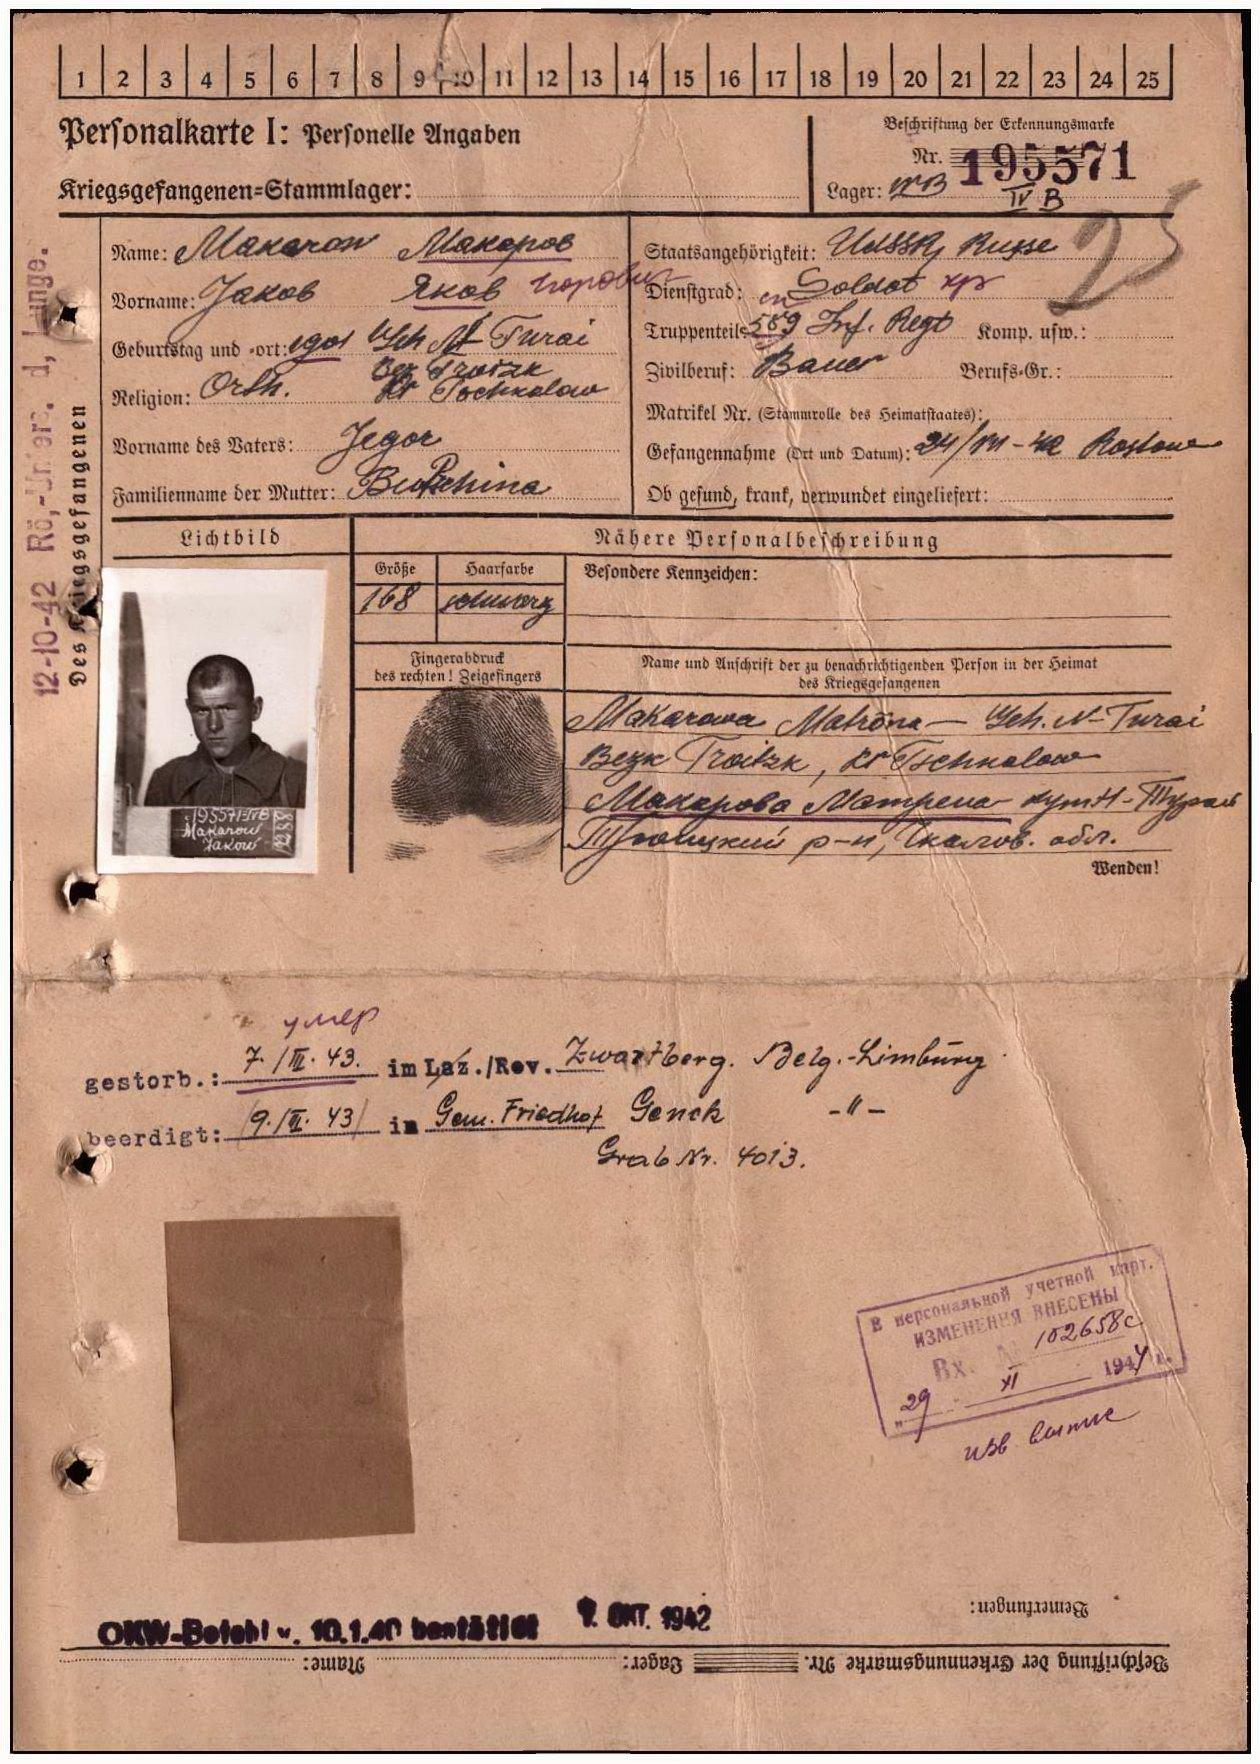 1 2 3 4 5 6 7 8 9 10 11 12 13 14 15 16 17 18 19 20 21 22 23 24 25
Personalkarte I: Personelle Angaben
Kriegsgefangenen=Stammlager:
Beschriftung der Erkennungsmarke
Nr. 195571
Lager: IV B
Des Kriegsgefangenen
12-10-42 Rö.-Unters. d. Lunge.
25
Name: Makarow Макаров
Vorname: Jakob Яков
Geburtstag und =ort: 1901 Geh. N-Turai
Bez Troizk
Religion: Orth. Kr Tschkalow
Vorname des Vaters: Jegor
Familienname der Mutter:
Staatsangehörigkeit: UdSSR, Russe
Dienstgrad: Soldat кр
Truppenteil: сп 589 Inf. Regt Komp. usw.:
Zivilberuf: Bauer Berufs=Gr.:
Matrikel Nr. (Stammrolle des Heimatstaates):
Gefangennahme (Ort und Datum): 24/VII-42 Rostow
Ob gesund, krank, verwundet eingeliefert:
Lichtbild
Nähere Personalbeschreibung
Größe Haarfarbe Besondere Kennzeichen:
168 schwarz
Fingerabdruck
des rechten! Zeigefingers
Name und Anschrift der zu benachrichtigenden Person in der Heimat
des Kriegsgefangenen
Makarowa Matröna - Geh. N-Turai
Bezk Troitzk, Kr Tschkalow
Макарова Матрена хут Н-Турай
Троицкий р-н, Чкалов. обл.
Wenden!
195571 IVB
Makarow
Jakow
умер
gestorb.: 7./III. 43. im Laz./Rev. Zwartberg. Belg.-Limburg
beerdigt: (9./III. 43) in Gem. Friedhof Genck -"-
Grab Nr. 4013.
В персональной учетной карт.
ИЗМЕНЕНИЯ ВНЕСЕНЫ
Вх. № 102658с
"29" XI 1944 г.
изв
OKW-Befehl v. 10.1.40 bestätigt 7. OKT. 1942
Bemerkungen:
Beschriftung der Erkennungsmarke Nr. Lager: Name: